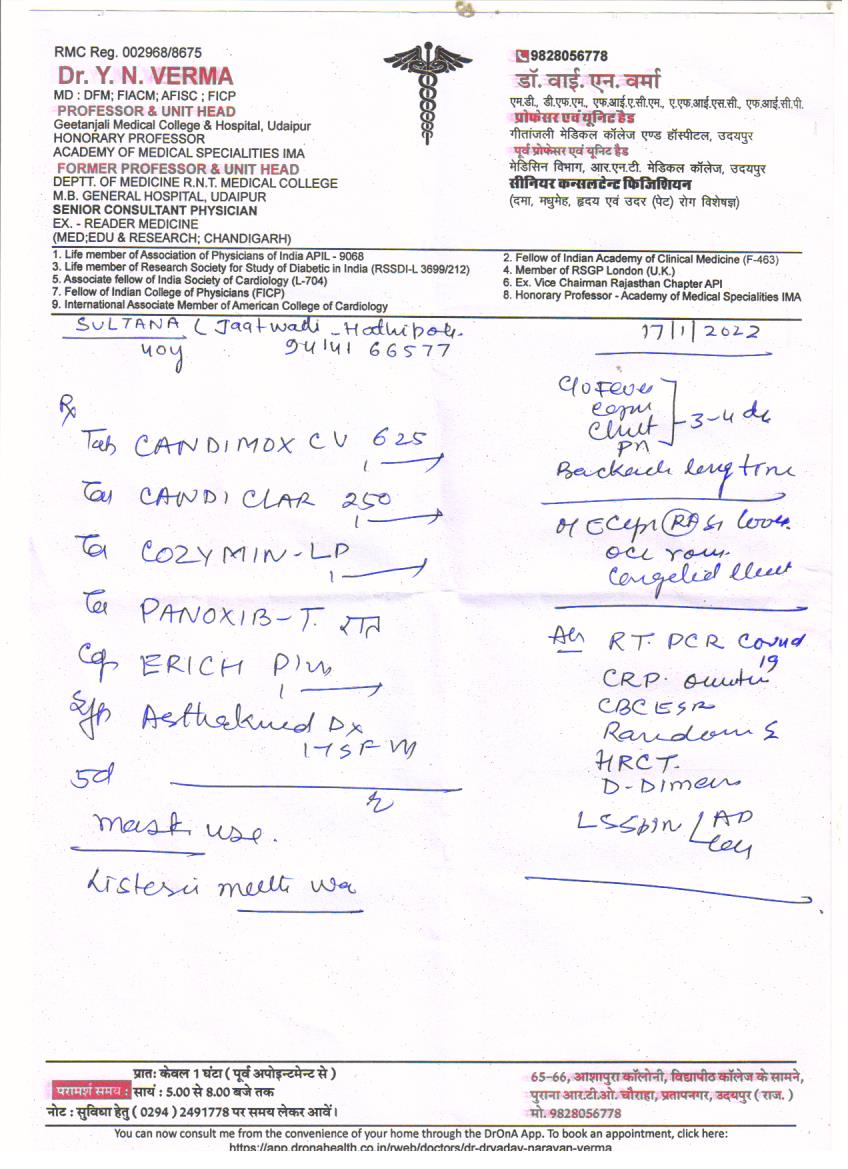 RMC Reg. 002968/8675
Dr. Y. N. VERMA
MD : DFM; FIACM; AFISC ; FICP
PROFESSOR & UNIT HEAD
Geetanjali Medical College & Hospital, Udaipur
HONORARY PROFESSOR
ACADEMY OF MEDICAL SPECIALITIES IMA
FORMER PROFESSOR & UNIT HEAD
DEPTT. OF MEDICINE R.N.T. MEDICAL COLLEGE
M.B. GENERAL HOSPITAL, UDAIPUR
SENIOR CONSULTANT PHYSICIAN
EX. - READER MEDICINE
(MED;EDU & RESEARCH; CHANDIGARH)
9828056778
डॉ. वाई. एन. वर्मा
एम.डी., डी.एफ.एम., एफ.आई.ए.सी.एम., ए.एफ.आई.एस.सी., एफ.आई.सी.पी.
प्रोफेसर एवं यूनिट हैड
गीतांजली मेडिकल कॉलेज एण्ड हॉस्पीटल, उदयपुर
पूर्व प्रोफेसर एवं यूनिट हैड
मेडिसिन विभाग, आर.एन.टी. मेडिकल कॉलेज, उदयपुर
सीनियर कन्सलटेन्ट फिजिशियन
(दमा, मधुमेह, हृदय एवं उदर (पेट) रोग विशेषज्ञ)
1. Life member of Association of Physicians of India APIL - 9068
3. Life member of Research Society for Study of Diabetic in India (RSSDI-L 3699/212)
5. Associate fellow of India Society of Cardiology (L-704)
7. Fellow of Indian College of Physicians (FICP)
9. International Associate Member of American College of Cardiology
2. Fellow of Indian Academy of Clinical Medicine (F-463)
4. Member of RSGP London (U.K.)
6. Ex. Vice Chairman Rajasthan Chapter API
8. Honorary Professor - Academy of Medical Specialities IMA
SULTANA
40y 9414166577
17/1/2022
Rx
Tab CANDIMOX CV 625
1
CANDICLAR 250
1
COZYMIN-LP
1
PANOXIB-T. रात
Cap ERICH Plus
1
Syp Asthakind Dx
1TSF
5d
mask use.
C/o Fever
3-4 da
Backach long time
RT. PCR Covid
19
CRP.
CBC ESR
Random S
HRCT.
D-Dimer
LS Spin AP
प्रातः केवल 1 घंटा ( पूर्व अपोइन्टमेन्ट से )
परामर्श समय : सायं : 5.00 से 8.00 बजे तक
नोट : सुविधा हेतु ( 0294 ) 2491778 पर समय लेकर आवें।
65-66, आशापुरा कॉलोनी, विद्यापीठ कॉलेज के सामने,
पुराना आर.टी.ओ. चौराहा, प्रतापनगर, उदयपुर ( राज. )
मो. 9828056778
You can now consult me from the convenience of your home through the DrOnA App. To book an appointment, click here:
https://app.dronahealth.co.in/rweb/doctors/dr-dryadav-narayan-verma